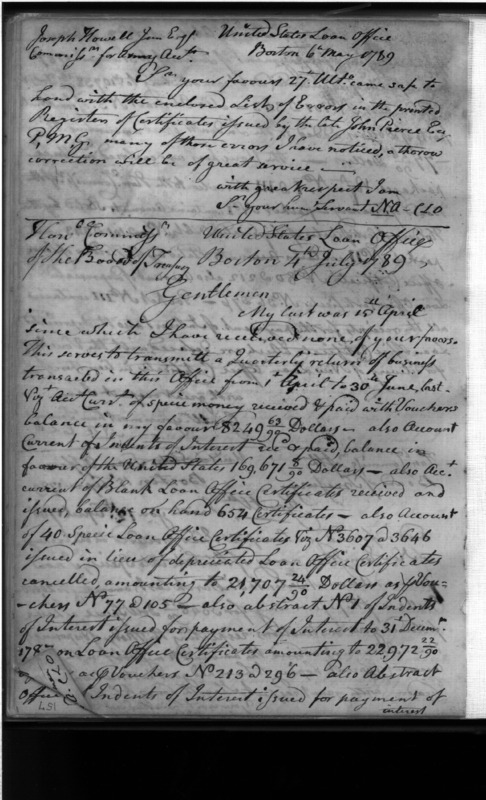 Joseph Howell Jun Esqr United States Loan Office
Commissr. for Army Acts. Boston 6th May 1789
Sir your favours 27 Ulto. came safe to
hand with the enclosed List of Errors in the printed
Registers of Certificates issued by the late John Pierce Esq
P, M G, many of those errors I have noticed, a thorow
correction will be of great service
with great respect I am
Sr. your hum Servant N A - CLO
Honol. Commissrs. United States Loan Office
of the Board of Treasury Boston 4th July 1789
Gentlemen
My last was 15th April
since which I have received none of your favors.
This serves to transmit a Quarterly return of business
transacted in this Office from 1t April to 30th June, last -
Vizt Acct Curt. of specie money received & paid with Vouchers
balance in my favour 8249 63/90 Dollars - also Account
Current of Indents of Interest recd & paid, balance in
favour of the United States 169,671 8/90 Dollars - also Acct
current of Blank Loan Office Certificates received and
issued, balance on hand 654 Certificates - also Account
of 40 Specie Loan Office Certificates Viz No 3607 a 3646
issued in lieu of depreciated Loan Office Certificates
cancelled, amounting to 21,707 24/90 Dollars as Vou-
-chers No 77 a 105 - also abstract No 1 of Indents
of Interest issued for payment of Interest to 31t Decemr.
178 on Loan Office Certificates amounting to 22972 22/90
Vouchers No 213 a 296 - also Abstract
Office Indents of Interest issued for payment of
interest